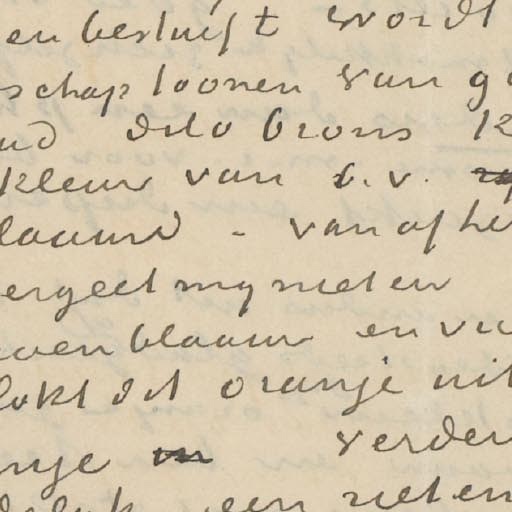 en besluijt wordt
schap toonen van g
ud dito brons k
kleur van b.v.
laauw - van af he
ergeetmynieten
wenblaauw en vi
lokt dit oranje uit
nje verder
een rieten